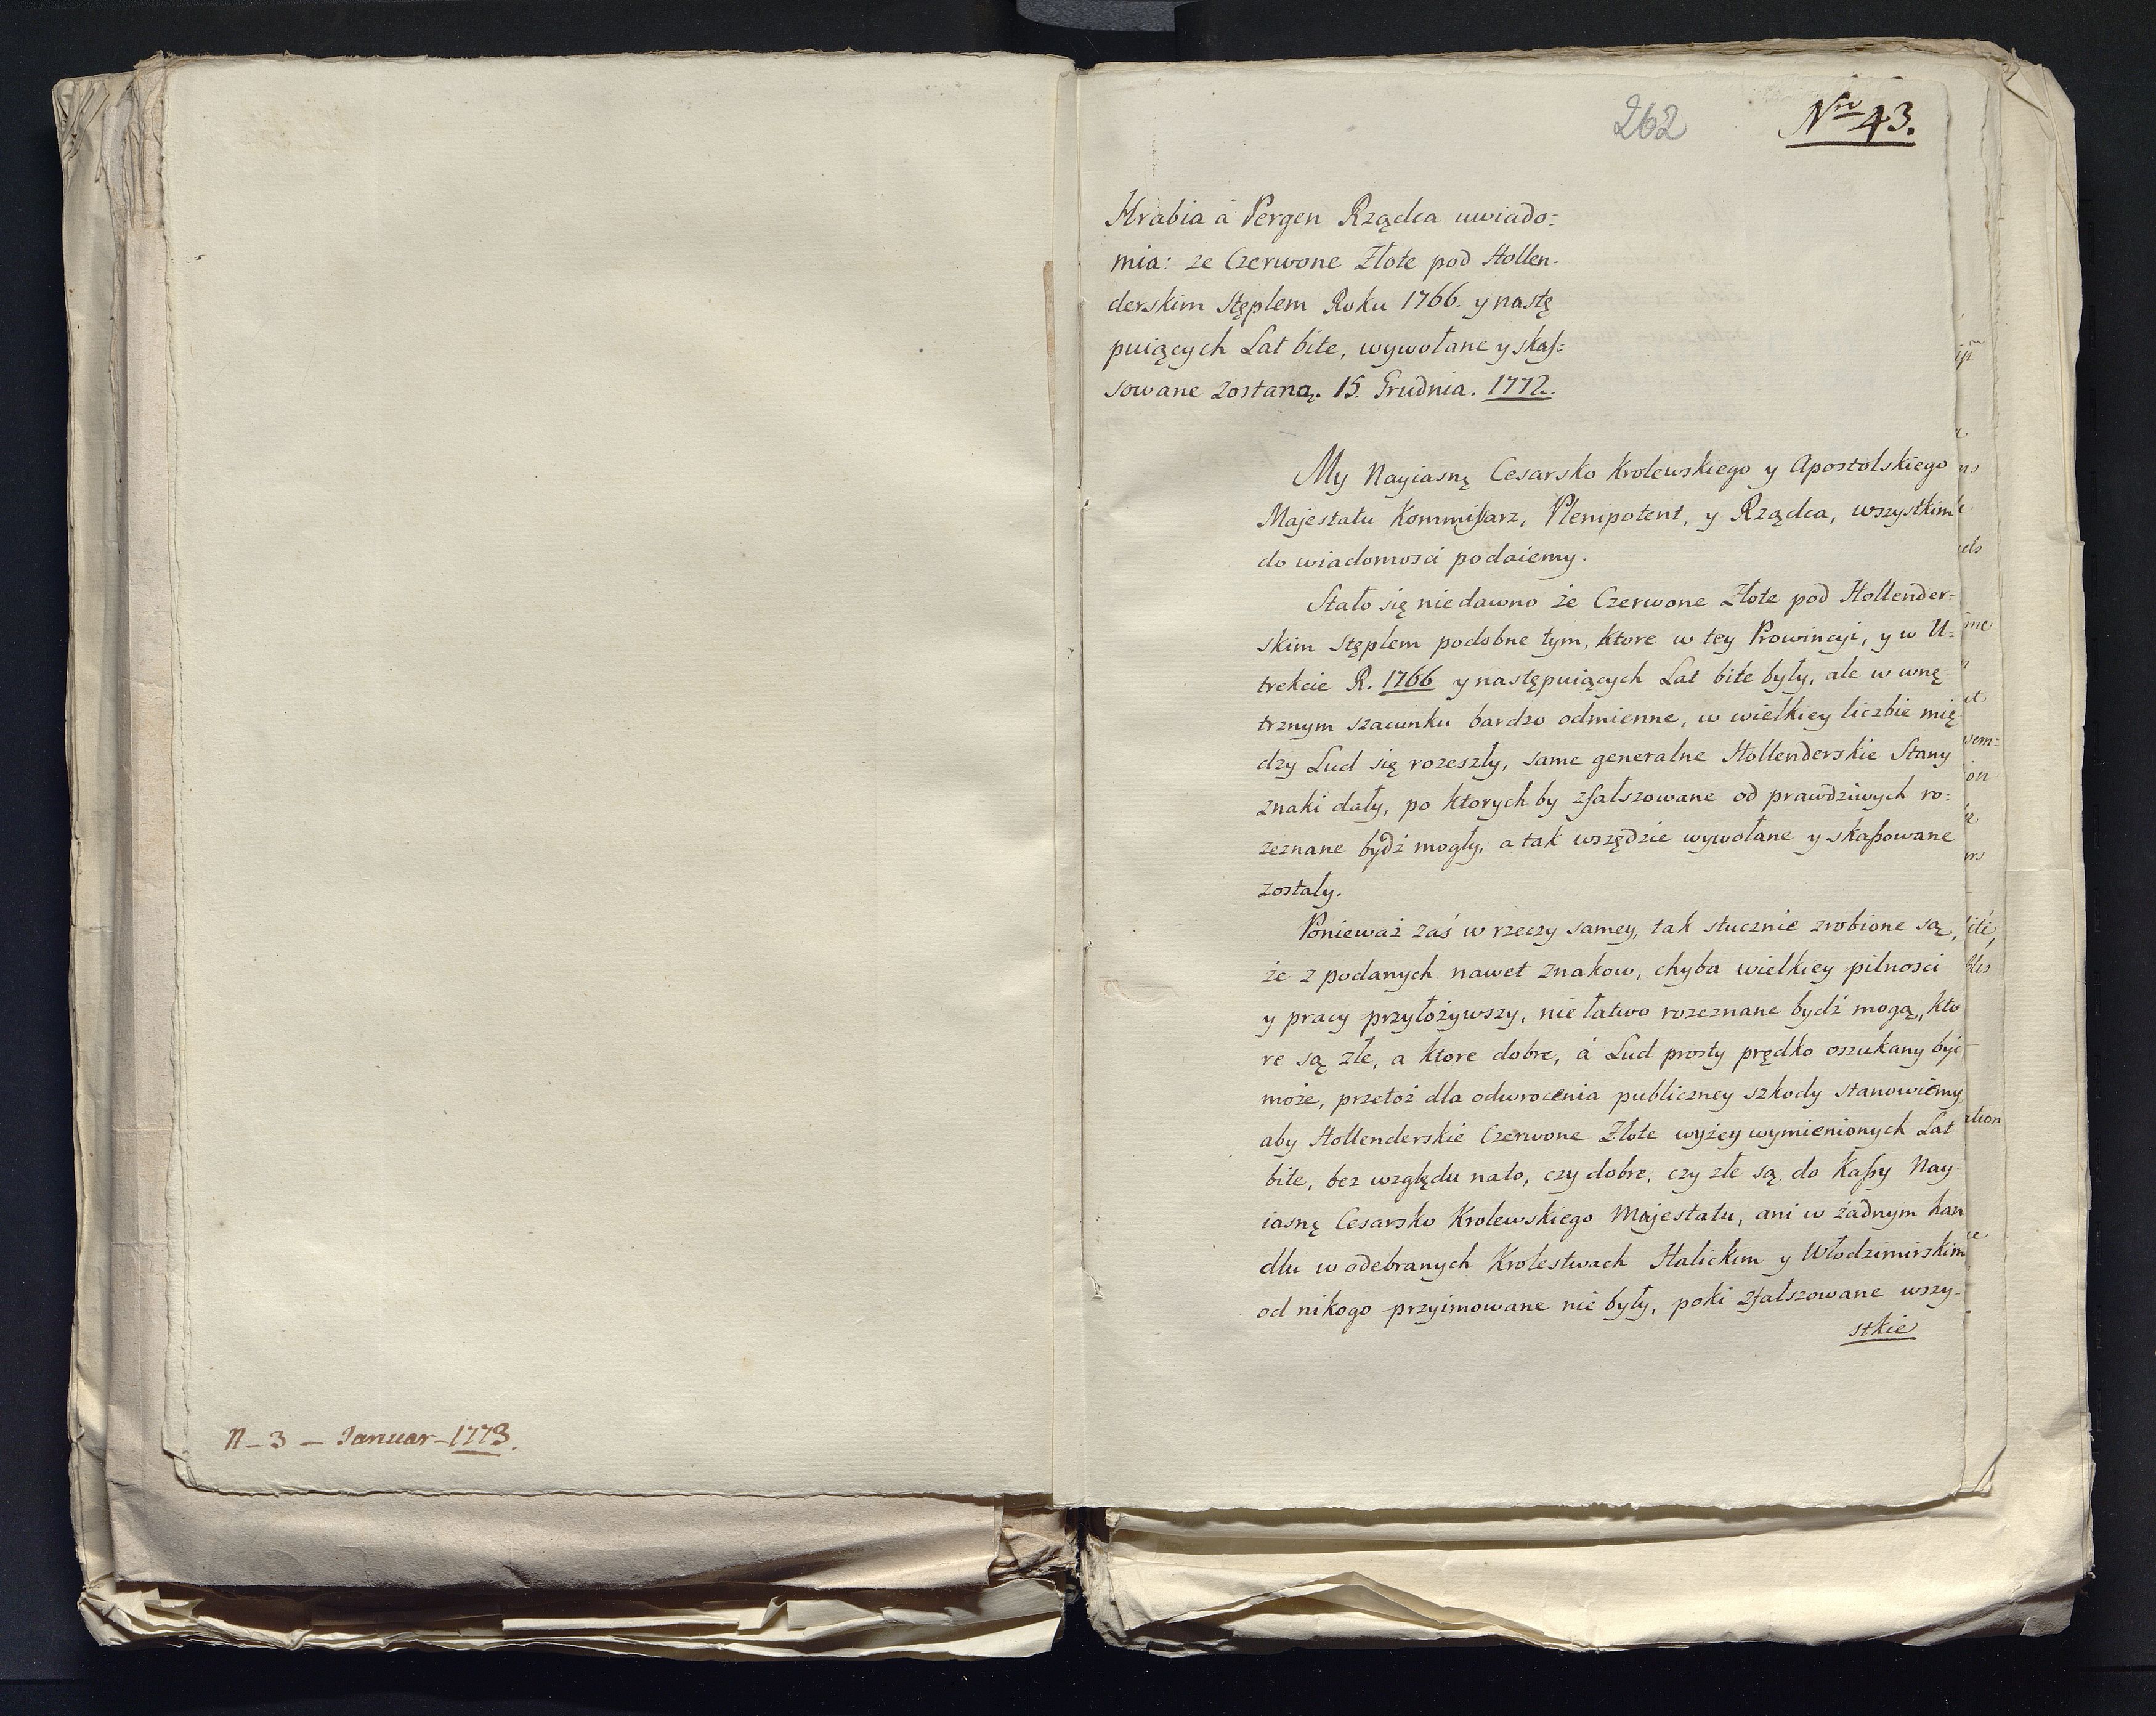 N_ 3 _ Januar_ 1773.
262
Nro 43.
Hrabia à Pergen Rządca uwiado=
mia: ze Czerwone Złote pod Hollen-
derskim Stęplem Roku 1766. y nastę
puiących Lat bite, wywołane y skas=
sowane zostaną. 15. Grudnia. 1772.
My Nayiasnę Cesarsko Krolewskiego y Apostolskiego
Majestatu Kommißarz, Plenipotent, y Rządca, wszystkim
do wiadomosci podaiemy.
Stało się niedawno że Czerwone Złote pod Hollender=
skim Stęplem podobne tym, ktore w tey Prowincyi, y w U=
trekcie R. 1766 y następuiących Lat bite były, ale w wnę-
trznym szacunku bardzo odmienne, w wielkiey liczbie mię
dzy Lud się rozeszły, same generalne Hollenderskie Stany
znaki dały, po ktorych by zfałszowane od prawdziwych ro=
zeznane bydź mogły, a tak wszędzie wywołane y skaßowane
zostały.
Ponieważ zaś w rzeczy samey, tak stucznie zrobione są,
że z podanych nawet znakow, chyba wielkiey pilnosci
y pracy przyłożywszy, nie łatwo rozeznane bydź mogą, kto
re są złe, a ktore dobre, à Lud prosty prędko oszukany być
może, przetoż dla odwrocenia publiczney szkody stanowiemy
aby Hollenderskie Czerwone Złote wyżey wymienionych Lat
bite, bez względu nato, czy dobre, czy złe są, do Kaßy Nay-
iasnę Cesarsko Krolewskiego Majestatu, ani w żadnym han
dlu w odebranych Krolestwach Halickim y Włodzimirskim
od nikogo przyimowane nie były, poki zfałszowane wszy-
stkie